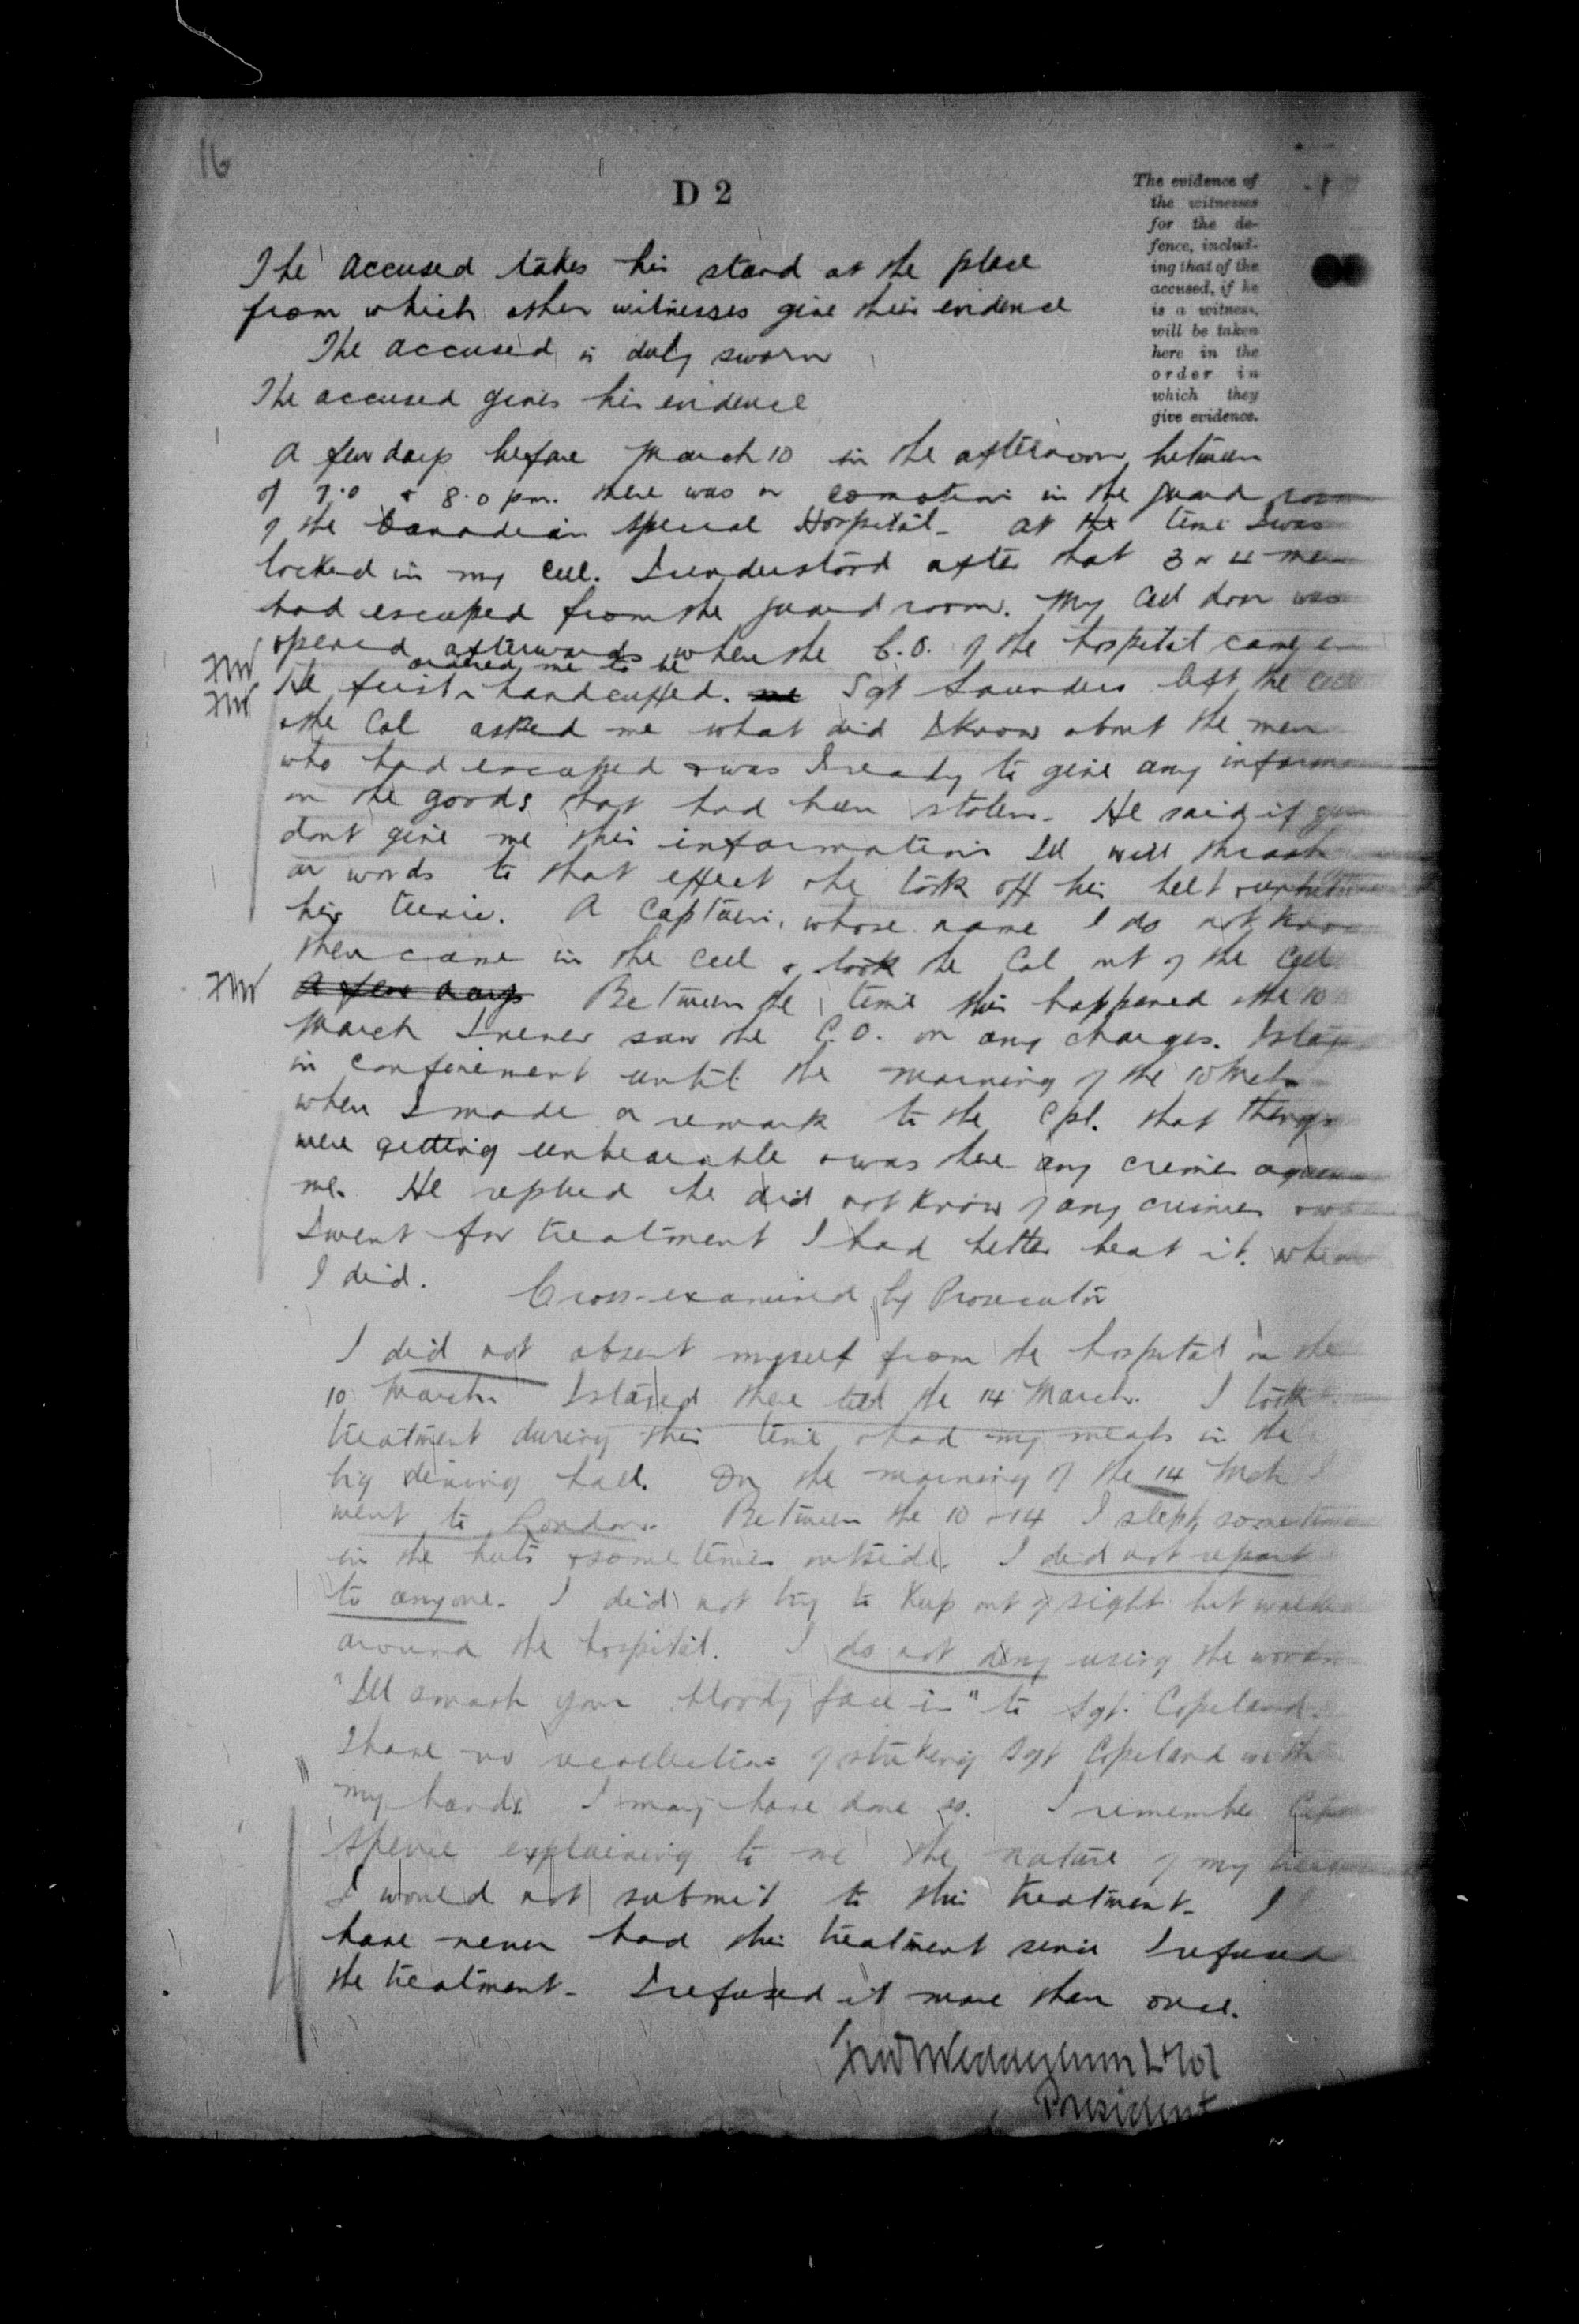 16
D 2
The evidence of
the witnesses
for the de-
fence, includ-
ing that of the
accused, if he
is a witness,
will be taken
here in the
order in
which they
give evidence.
The accused takes his stand at the place
from which other witnesses give their evidence
The accused is duly sworn
The accused gives his evidence
A few days before March 10 in the afternoon between
of 7.0 & 8.0 pm. there was a comotion in the guard room
of the Canadian Special Hospital - at the time I was
locked in my cell. I understood after that 3 or 4 men
had escaped from the guard room. My cell door was
opened afterwards when the C.O. of the hospital came in
ordered me to be
He first handcuffed. me Sgt Saunders left the cell
& the Col asked me what did I know about the men
who had escaped & was I ready to give any inform
on the goods that had been stolen. He said if you
dont give me this information Ill will thrash
or words to that effect & he took off his belt &
his tunic. A Captain, whose name I do not know
then came in the cell & took the Col out of the cell
A few days Between the time this happened & the 10
March I never saw the C.O. on any charges. I stayed
in confinement until the morning of the 10 Mch
when I made a remark to the Cpl. that things
were getting unbearable & was there any crime against
me. He replied he did not know of any crimes
I went for treatment I had better beat it. which
I did. Cross-examined by Prosecutor
I did not absent myself from the hospital on the
10 March. I stayed there till the 14 March. I took
treatment during this time & had my meals in the
big dining hall. On the morning of the 14 Mch I
went to London. Between the 10 & 14 I slept sometimes
in the huts & sometimes outside. I did not report
to anyone. I did not try to keep out of sight but walked
around the hospital. I do not deny using the words
"Ill smash your bloody face in" to Sgt. Copeland.
I have no recollection of striking Sgt Copeland with
my hands I may have done so. I remember Capt
Spence explaining to me the nature of my treatment
I would not submit to this treatment. I
have never had this treatment since I refused
the treatment. I refused it more than once.
Lt Col
President